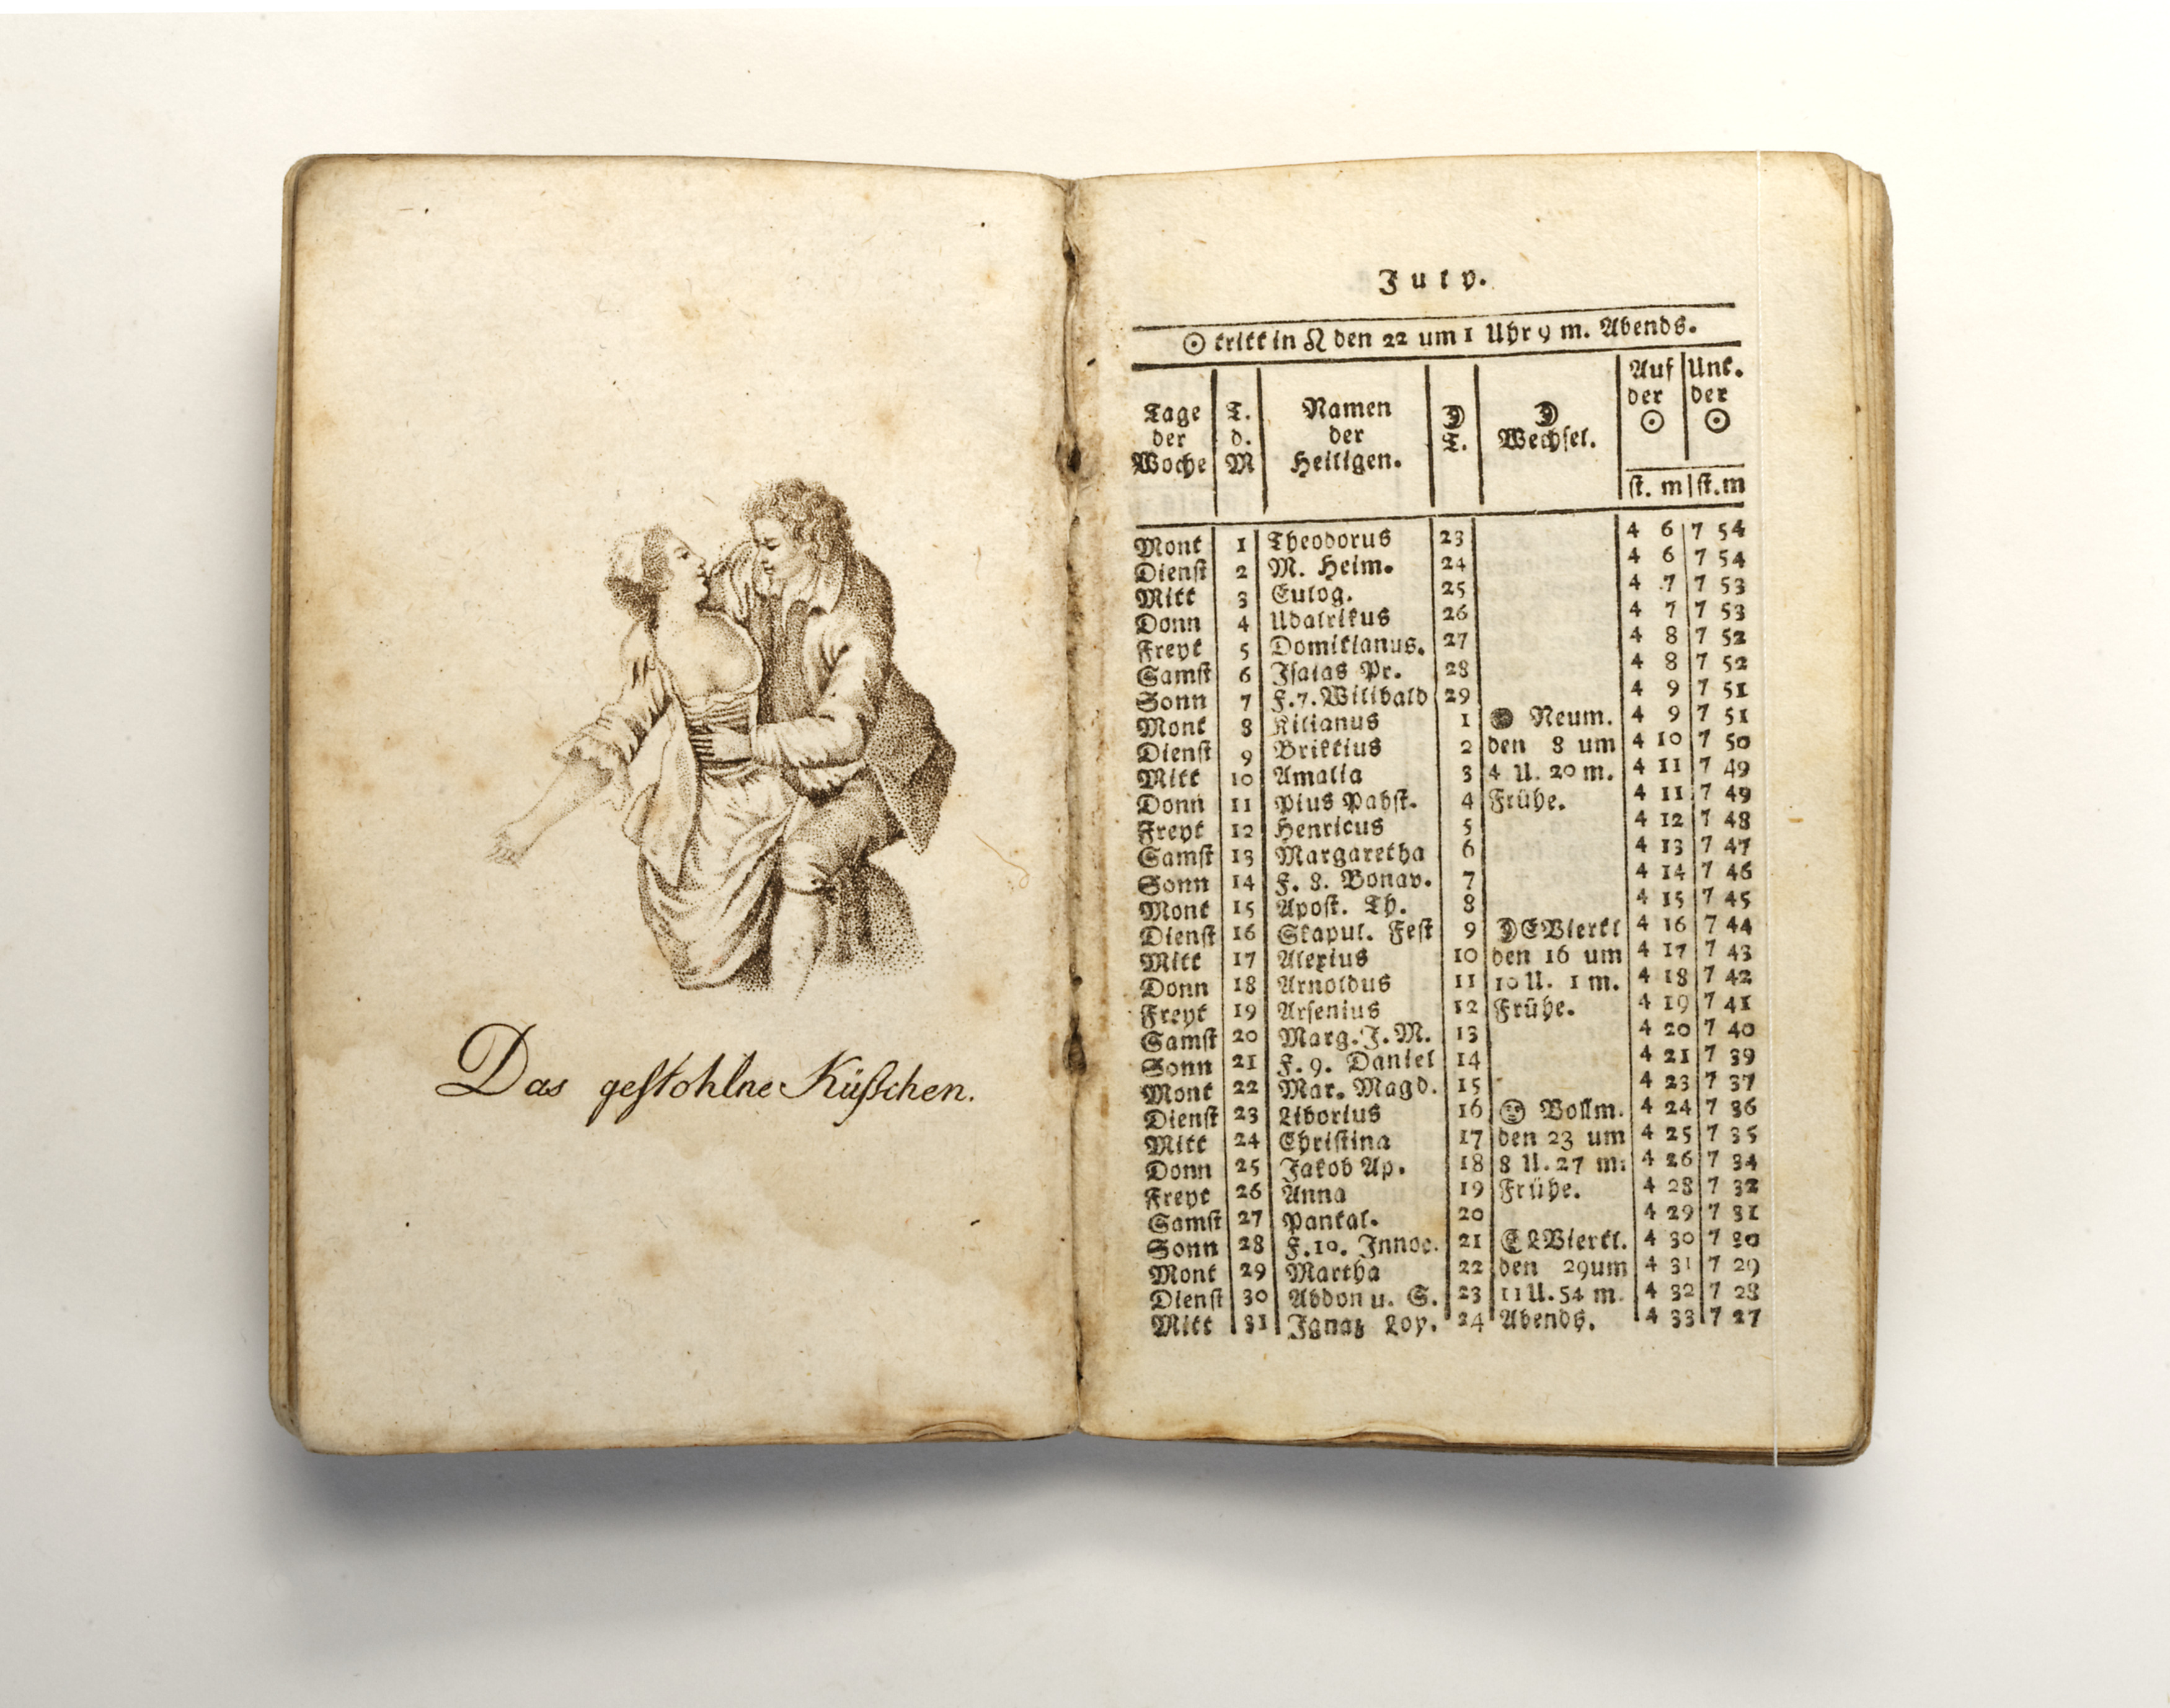 Das gestohlne Küßchen.
July.
☉ tritt in ♌ den 22 um 1 Uhr 9 m. Abends.
Tage der Woche | T. d. M | Namen der Heiligen. | ☽ T. | ☽ Wechsel. | Auf der ☉ st. m | Unt. der ☉ st. m
Mont 1 Theodorus 23 4 6 7 54
Dienst 2 M. Heim. 24 4 6 7 54
Mitt 3 Eulog. 25 4 7 7 53
Donn 4 Udalrikus 26 4 7 7 53
Freyt 5 Domitianus. 27 4 8 7 52
Samst 6 Isaias Pr. 28 4 8 7 52
Sonn 7 F. 7. Wilibald 29 4 9 7 51
Mont 8 Kilianus 1 ● Neum. 4 9 7 51
Dienst 9 Briktius 2 den 8 um 4 10 7 50
Mitt 10 Amalia 3 4 U. 20 m. 4 11 7 49
Donn 11 Pius Pabst. 4 Frühe. 4 11 7 49
Freyt 12 Henricus 5 4 12 7 48
Samst 13 Margaretha 6 4 13 7 47
Sonn 14 F. 8. Bonav. 7 4 14 7 46
Mont 15 Apost. Th. 8 4 15 7 45
Dienst 16 Skapul. Fest 9 ☽ E Viertl 4 16 7 44
Mitt 17 Alexius 10 den 16 um 4 17 7 43
Donn 18 Arnoldus 11 10 U. 1 m. 4 18 7 42
Freyt 19 Arsenius 12 Frühe. 4 19 7 41
Samst 20 Marg. J. M. 13 4 20 7 40
Sonn 21 F. 9. Daniel 14 4 21 7 39
Mont 22 Mar. Magd. 15 4 23 7 37
Dienst 23 Liborius 16 Vollm. 4 24 7 36
Mitt 24 Christina 17 den 23 um 4 25 7 35
Donn 25 Jakob Ap. 18 8 U. 27 m. 4 26 7 34
Freyt 26 Anna 19 Frühe. 4 28 7 32
Samst 27 Pantal. 20 4 29 7 31
Sonn 28 F. 10. Innoc. 21 ☾ L Viertl. 4 30 7 30
Mont 29 Martha 22 den 29 um 4 31 7 29
Dienst 30 Abdon u. S. 23 11 U. 54 m. 4 32 7 28
Mitt 31 Ignaz Loy. 24 Abends. 4 33 7 27